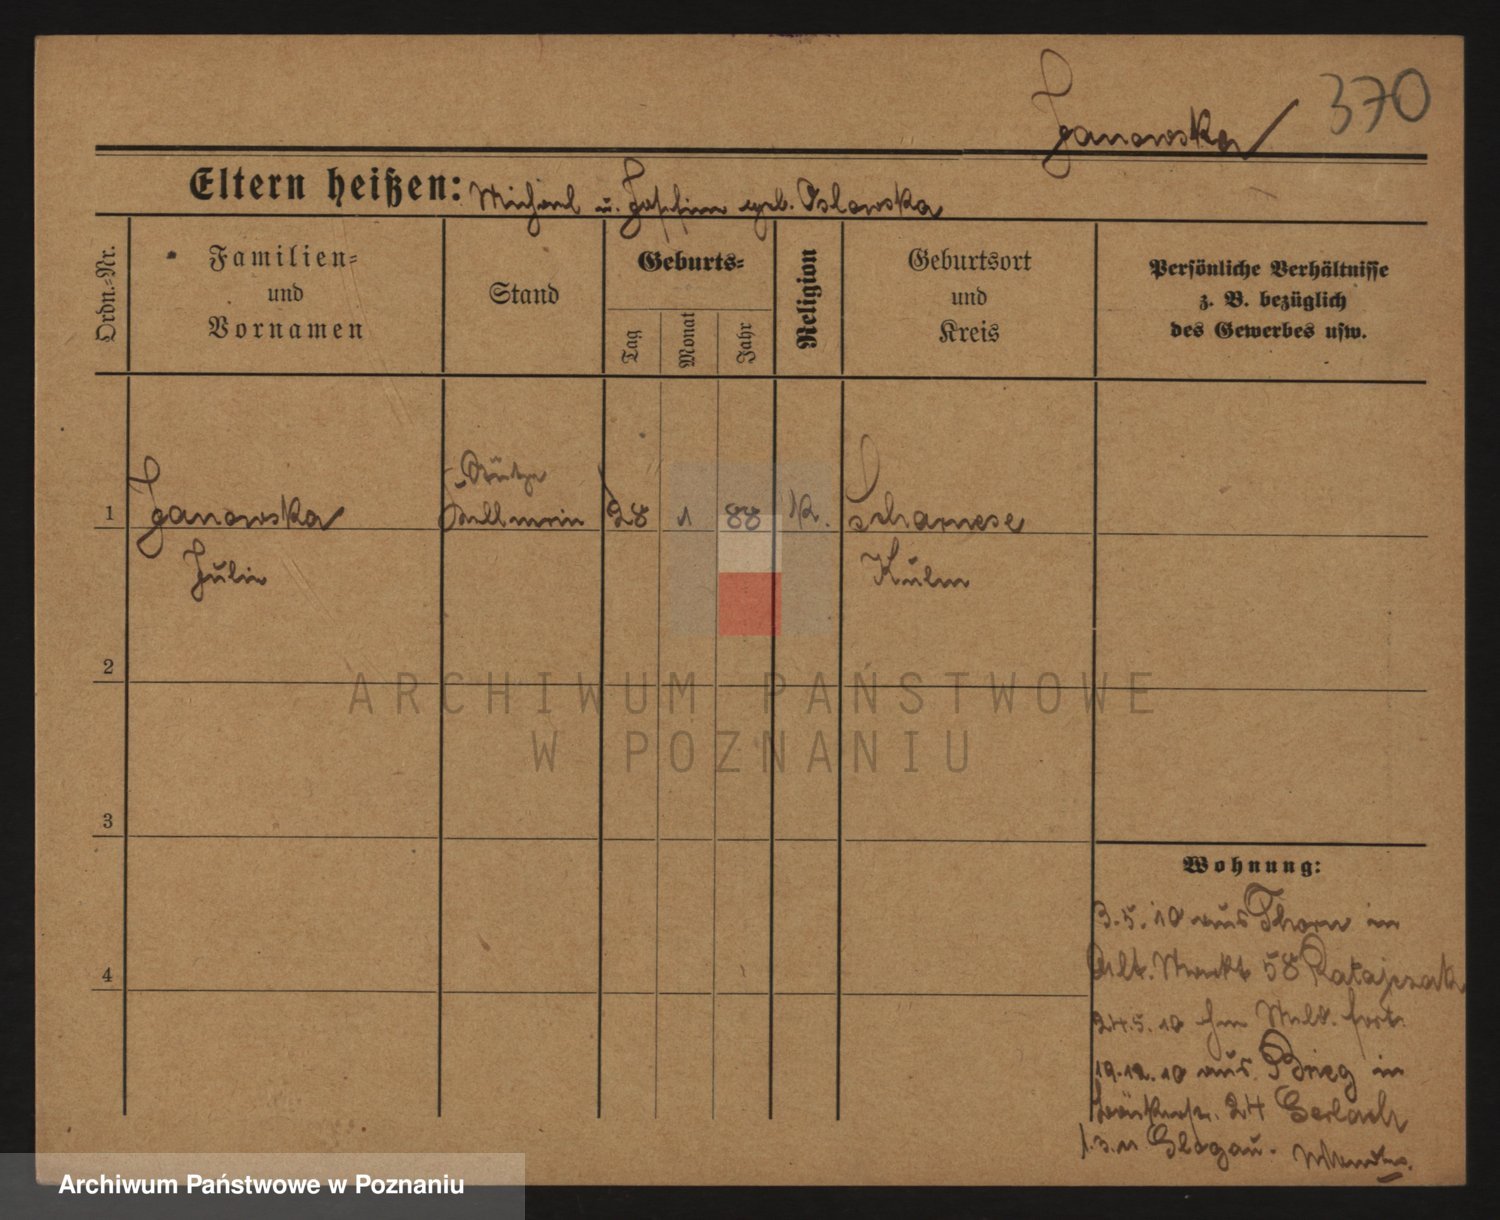 370
Janowska
Eltern heißen: Michael u. Josefine geb. Oslowska
Ordn.-Nr.
Familien-
und
Vornamen
Stand
Geburts-
Tag
Monat
Jahr
Religion
Geburtsort
und
Kreis
Persönliche Verhältnisse
z. B. bezüglich
des Gewerbes usw.
Stütze
1 Janowska 28 1 88 K. Scharnese
Julie Kulm
2
3
4
ARCHIWUM PAŃSTWOWE
W POZNANIU
Wohnung:
3.5.10 aus Thorn in
Alt. Markt 58 Ratajczak
24.5.10 fort
19.12.10 aus Brieg in
24 Gerlach
1.3.11 Glogau.
Archiwum Państwowe w Poznaniu